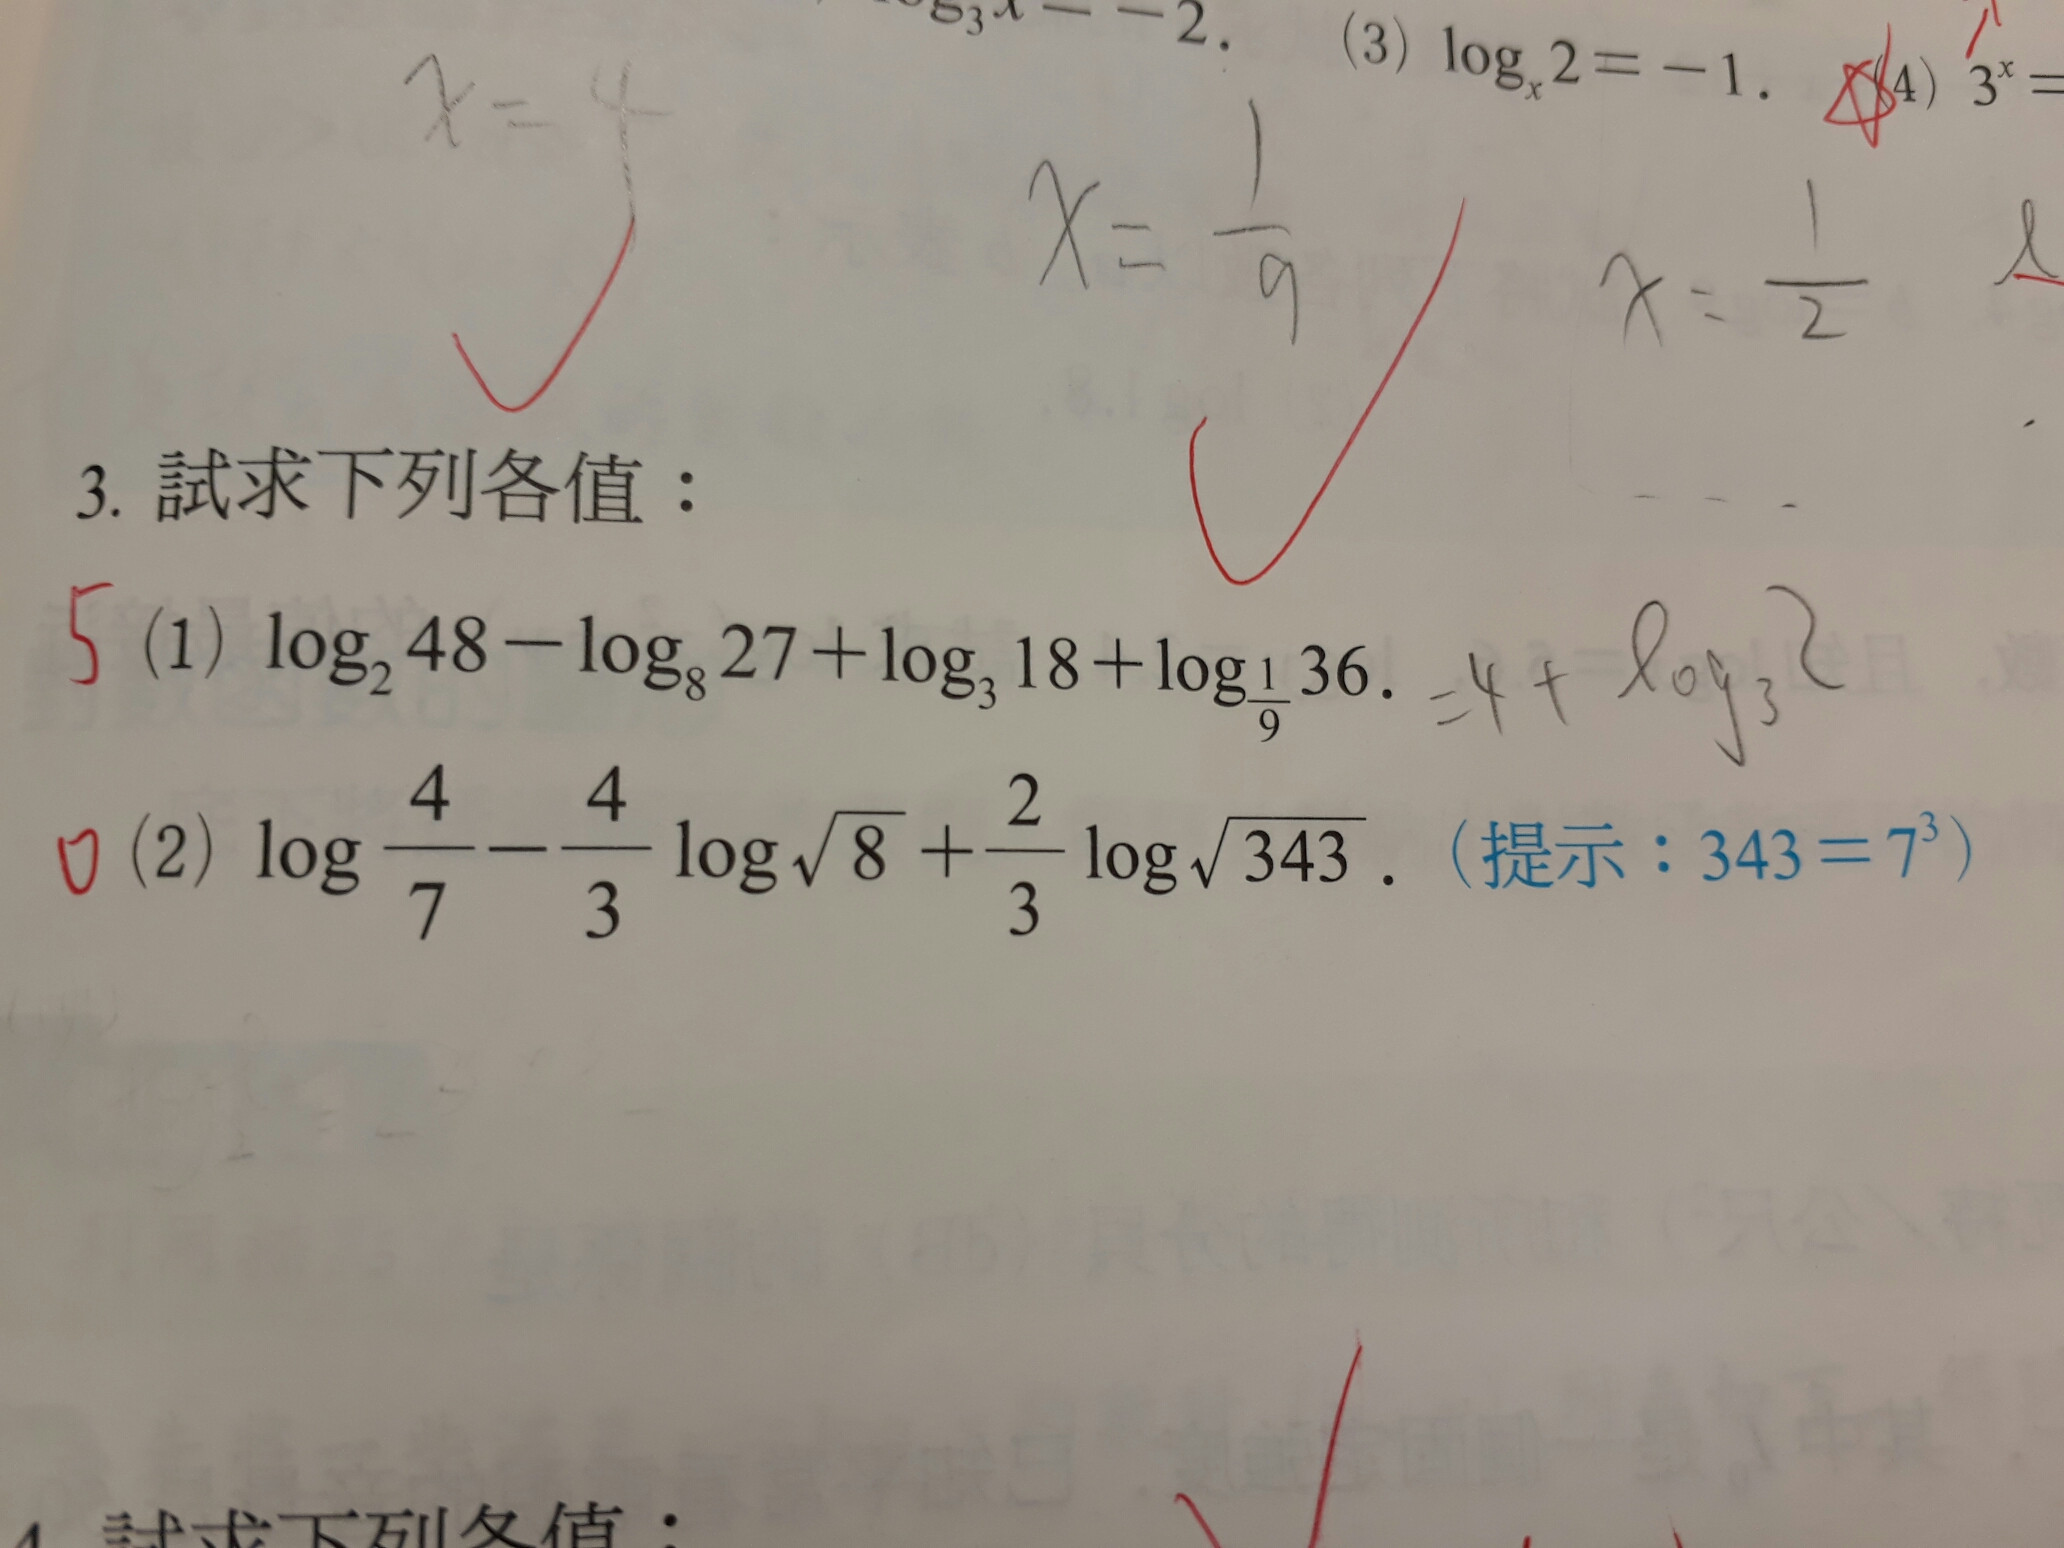 log₃x = −2. (3) logₓ2 = −1. (4) 3ˣ =
x = 4
x = 1/9
x = 1/2
3. 試求下列各值：
5 (1) log₂ 48 − log₈ 27 + log₃ 18 + log_{1/9} 36. = 4 + log₃ 2
0 (2) log 4/7 − 4/3 log √8 + 2/3 log √343. （提示：343 = 7³）
4. 試求下列各值：